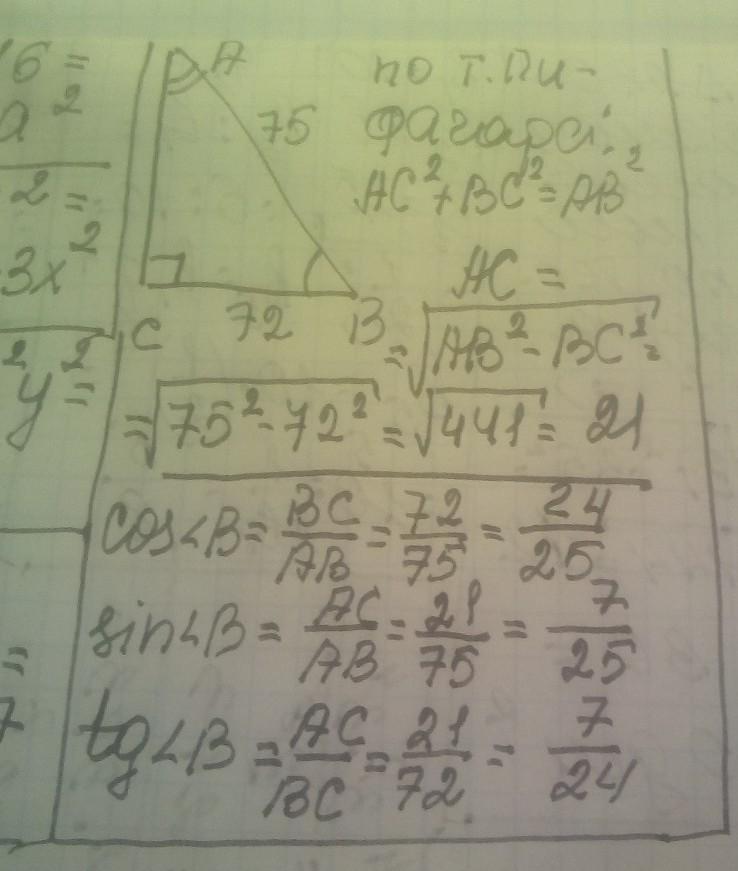 6 =
a²
2 =
3x²
²y² =
=
7
A
75
C
72
B
по т.Пи-
фагора:
AC² + BC² = AB²
AC =
= √AB² - BC² =
= √75² - 72² = √441 = 21
cos∠B = BC/AB = 72/75 = 24/25
sin∠B = AC/AB = 21/75 = 7/25
tg∠B = AC/BC = 21/72 = 7/24